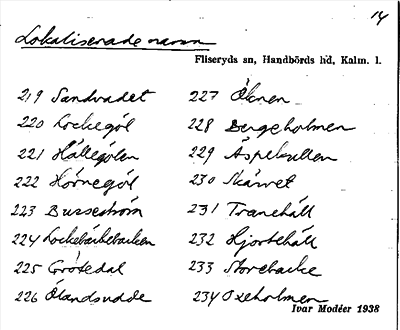 14
Lokaliserade namn
Fliseryds sn, Handbörds hd, Kalm. l.
219 Sandvadet
220 Lockegöl
221 Hällegölen
222 Hörnegöl
223 Busseström
224 Lockebäckebacken
225 Grötedal
226 Ölandsudde
227 Öknen
228 Bergeholmen
229 Äspekullen
230 Skäret
231 Tranehäll
232 Hjortehäll
233 Storebacke
234 Oxeholmen
Ivar Modéer 1938